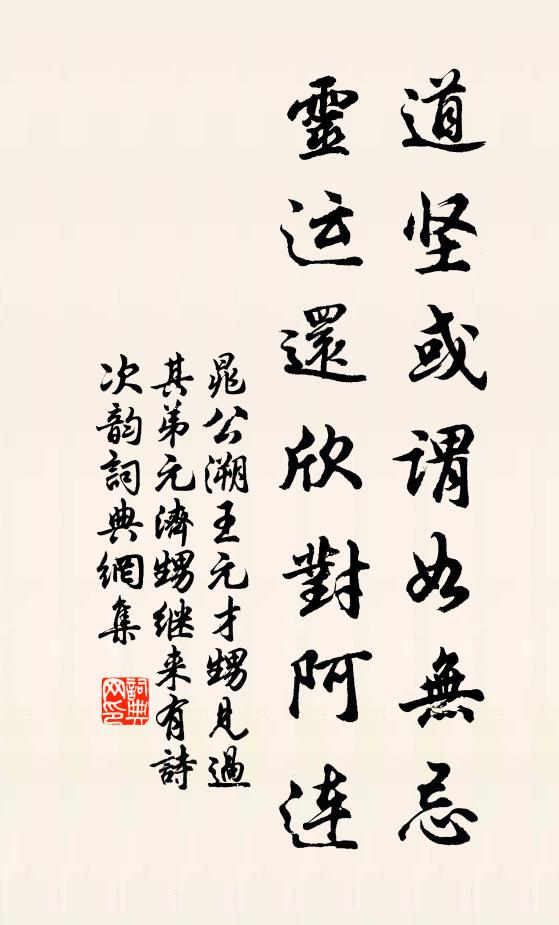 道坚或谓如無忌
靈运還欣對阿连
晁公溯王元才甥見過
其弟元濟甥继来有詩
次韵詞典網集
詞典网印